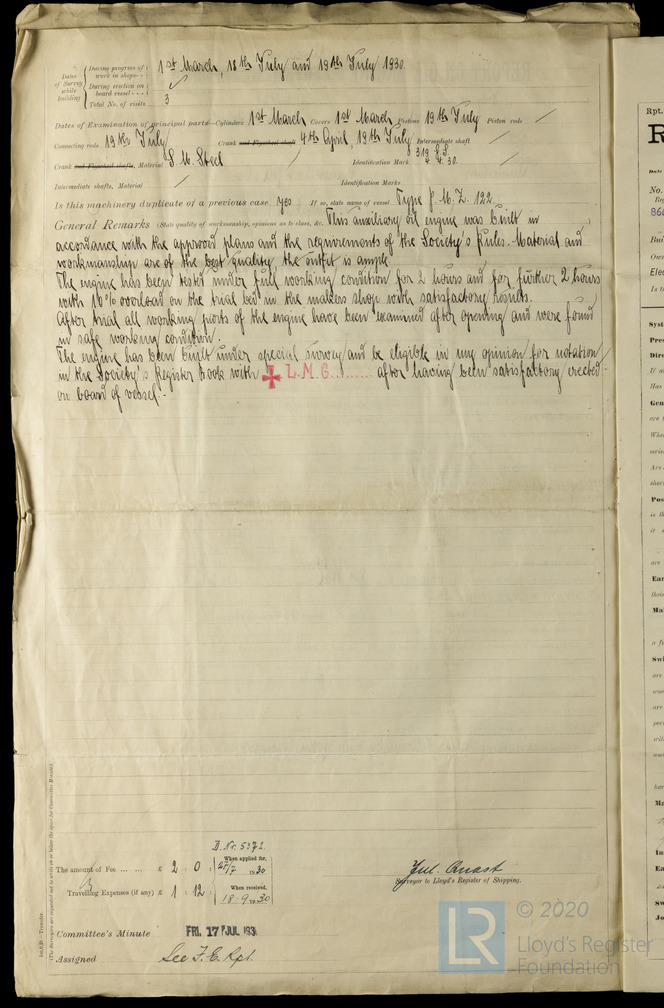 Dates of Survey while building
During progress of work in shops - - 1st March, 18th July and 19th July 1930.
During erection on board vessel - - -
Total No. of visits 3
Dates of Examination of principal parts—Cylinders 1st March Covers 1st March Pistons 19th July Piston rods /
Connecting rods 19th July Crank and Flywheel shafts 4th April, 19th July Intermediate shaft /
Crank and Flywheel shafts, Material S. M. Steel Identification Mark 4.4.30. /
Intermediate shafts, Material / Identification Marks
Is this machinery duplicate of a previous case yes If so, state name of vessel Type J. M. Z. 122
General Remarks (State quality of workmanship, opinions as to class, &c. This auxiliary oil engine was built in
accordance with the approved plans and the requirements of the Society's Rules. Material and
workmanship are of the best quality the outfit is ample.
The engine has been tested under full working condition for 2 hours and for further 2 hours
with 10% overload on the trial bed in the makers shop with satisfactory results.
After trial all working parts of the engine have been examined after opening and were found
in safe working condition.
The engine has been built under special survey and be eligible in my opinion for notation
in the Society's Register book with ✠ L.M.C. ........ after having been satisfactory erected
on board of vessel.-
D. Nr. 5372
The amount of Fee ... ... £ 2 : 0 : When applied for, 27/7 1930
Travelling Expenses (if any) £ 1 : 12 : When received, 18-9-1930
Surveyor to Lloyd's Register of Shipping.
Committee's Minute FRI. 17 JUL 193
Assigned See F.E. Rpt.
(The Surveyors are requested not to write on or below the space for Committee's Minute.)
Rpt.
© 2020
LR Lloyd's Register
Foundation